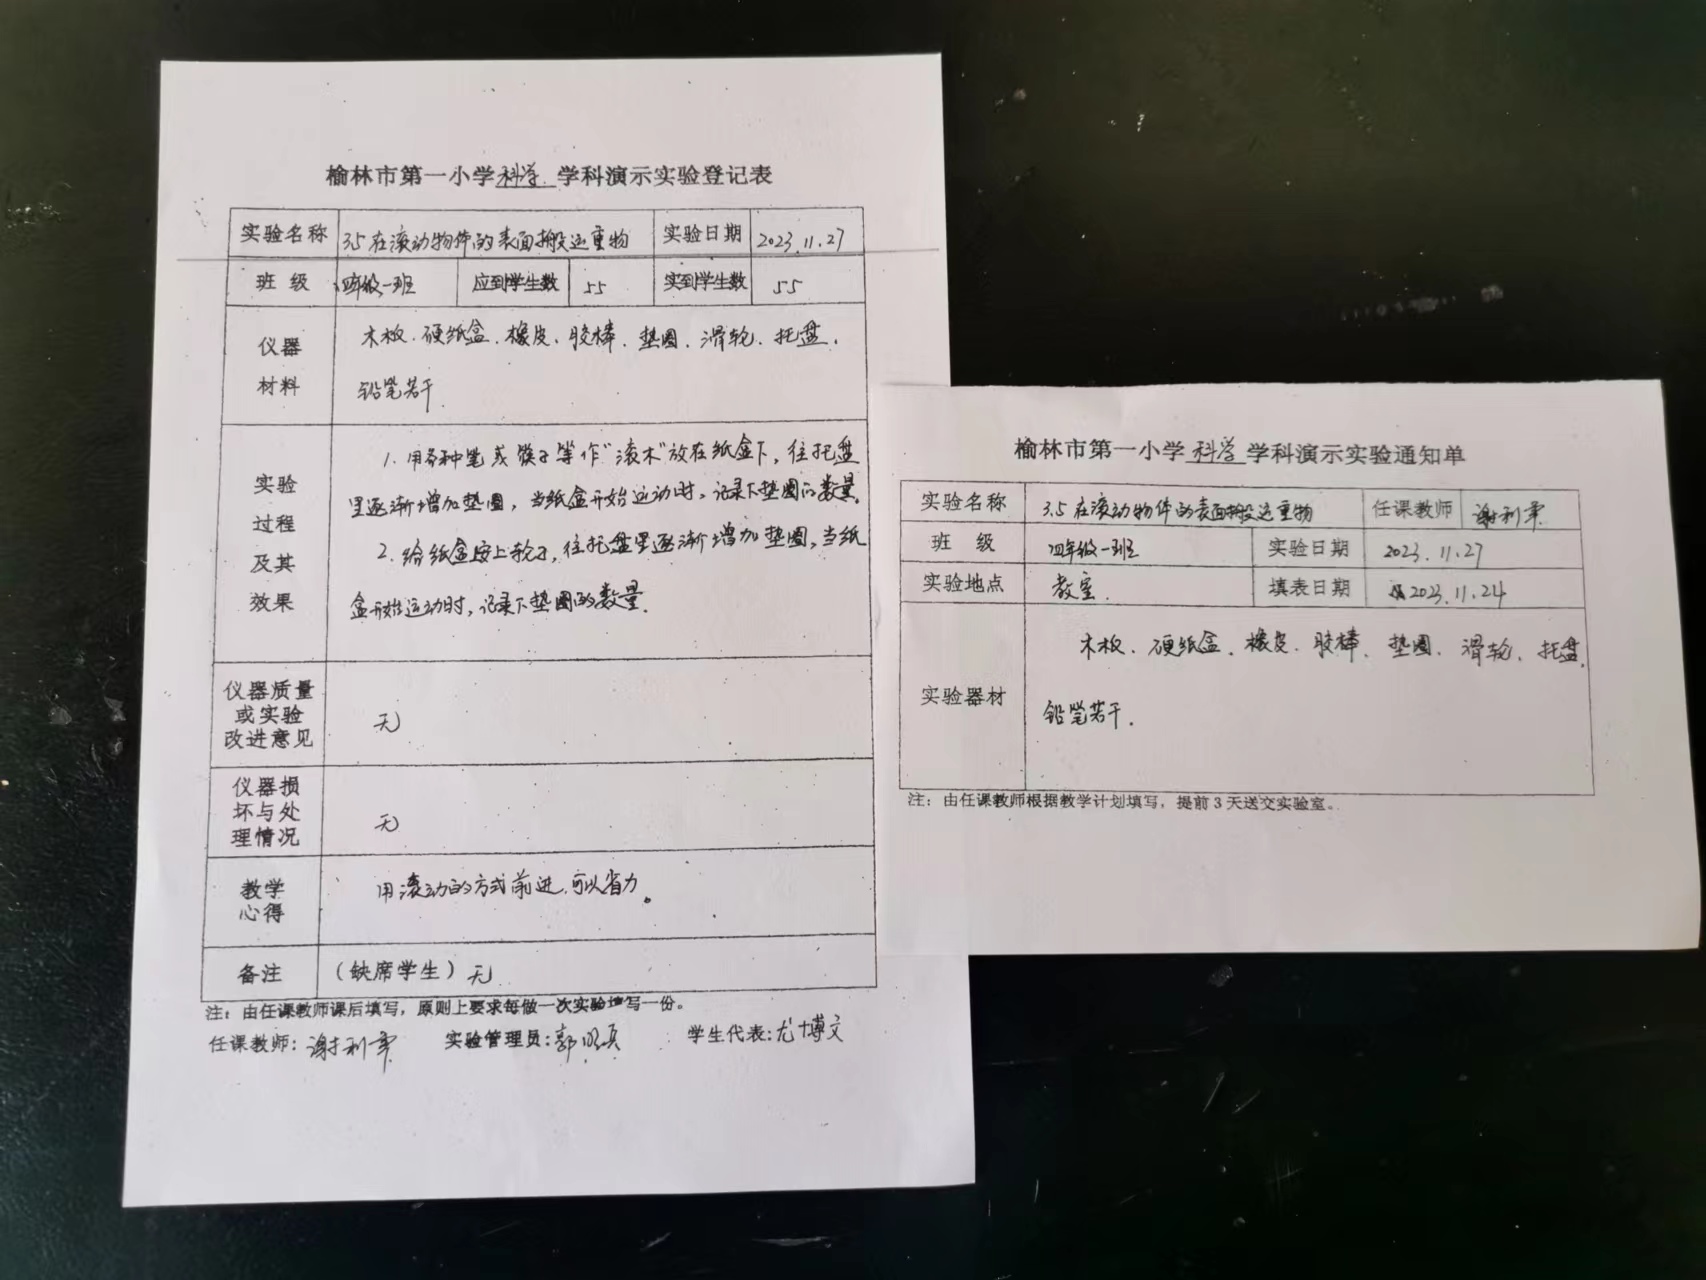 榆林市第一小学科学学科演示实验登记表
实验名称 3.5在滚动物体的表面搬运重物 实验日期 2023.11.27
班 级 四年级一班 应到学生数 55 实到学生数 55
仪器
材料
木板、硬纸盒、橡皮、胶棒、垫圈、滑轮、托盘、
铅笔若干
实验
过程
及其
效果
1.用各种笔或筷子等作“滚木”放在纸盒下,往托盘
里逐渐增加垫圈,当纸盒开始运动时,记录下垫圈的数量。
2.给纸盒安上轮子,往托盘里逐渐增加垫圈,当纸
盒开始运动时,记录下垫圈的数量.
仪器质量
或实验
改进意见
无
仪器损
坏与处
理情况
无
教学
心得
用滚动的方式前进,可以省力。
备注 (缺席学生)无
注:由任课教师课后填写,原则上要求每做一次实验填写一份。
任课教师:谢利 实验管理员:郭 学生代表:尤博文
榆林市第一小学科学学科演示实验通知单
实验名称 3.5在滚动物体的表面搬运重物 任课教师 谢利
班 级 四年级一班 实验日期 2023.11.27
实验地点 教室. 填表日期 2023.11.24
实验器材
木板、硬纸盒、橡皮、胶棒、垫圈、滑轮、托盘,
铅笔若干.
注:由任课教师根据教学计划填写,提前3天送交实验室。